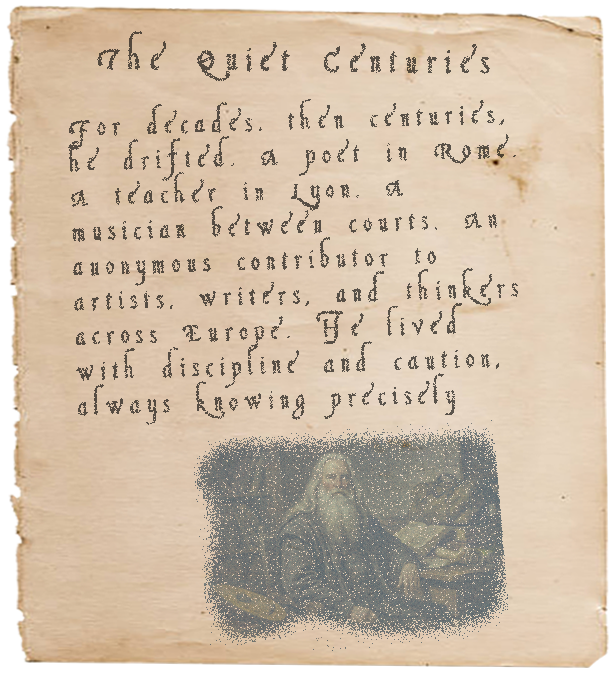 The Quiet Centuries
For decades, then centuries,
he drifted. A poet in Rome.
A teacher in Lyon. A
musician between courts. An
anonymous contributor to
artists, writers, and thinkers
across Europe. He lived
with discipline and caution,
always knowing precisely